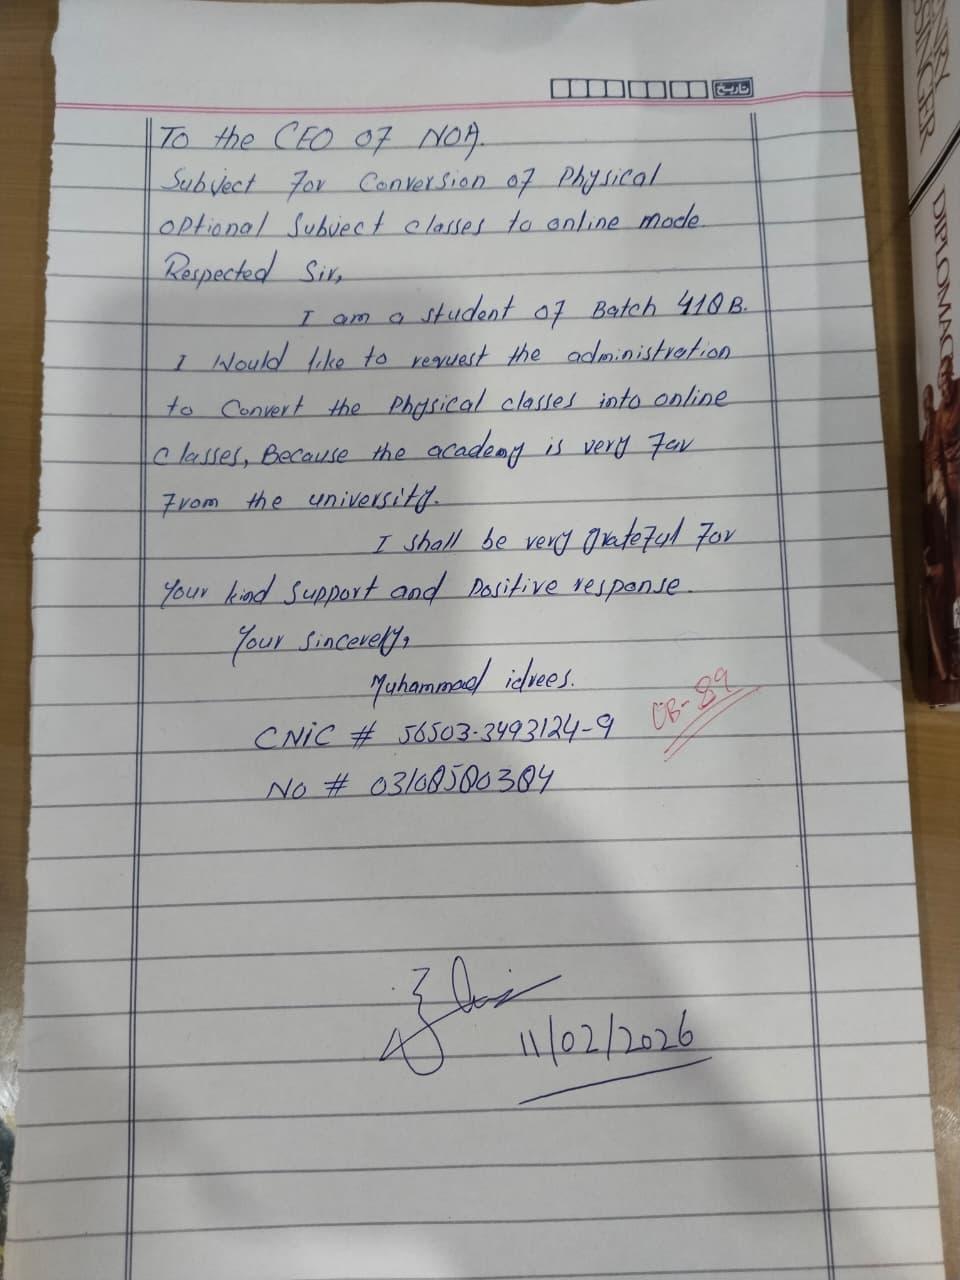 تاریخ
To the CEO of NOA.
Subject For Conversion of Physical
optional Subject classes to online mode.
Respected Sir,
I am a student of Batch 410 B.
I Would like to request the administration
to Convert the Physical classes into online
Classes, Because the academy is very far
from the university.
I shall be very grateful for
Your kind Support and Positive response.
Your Sincerely,
Muhammad idrees.
CNIC # 56503-3493124-9
CB-89
No #
11/02/2026
HENRY
KISSINGER
DIPLOMACY